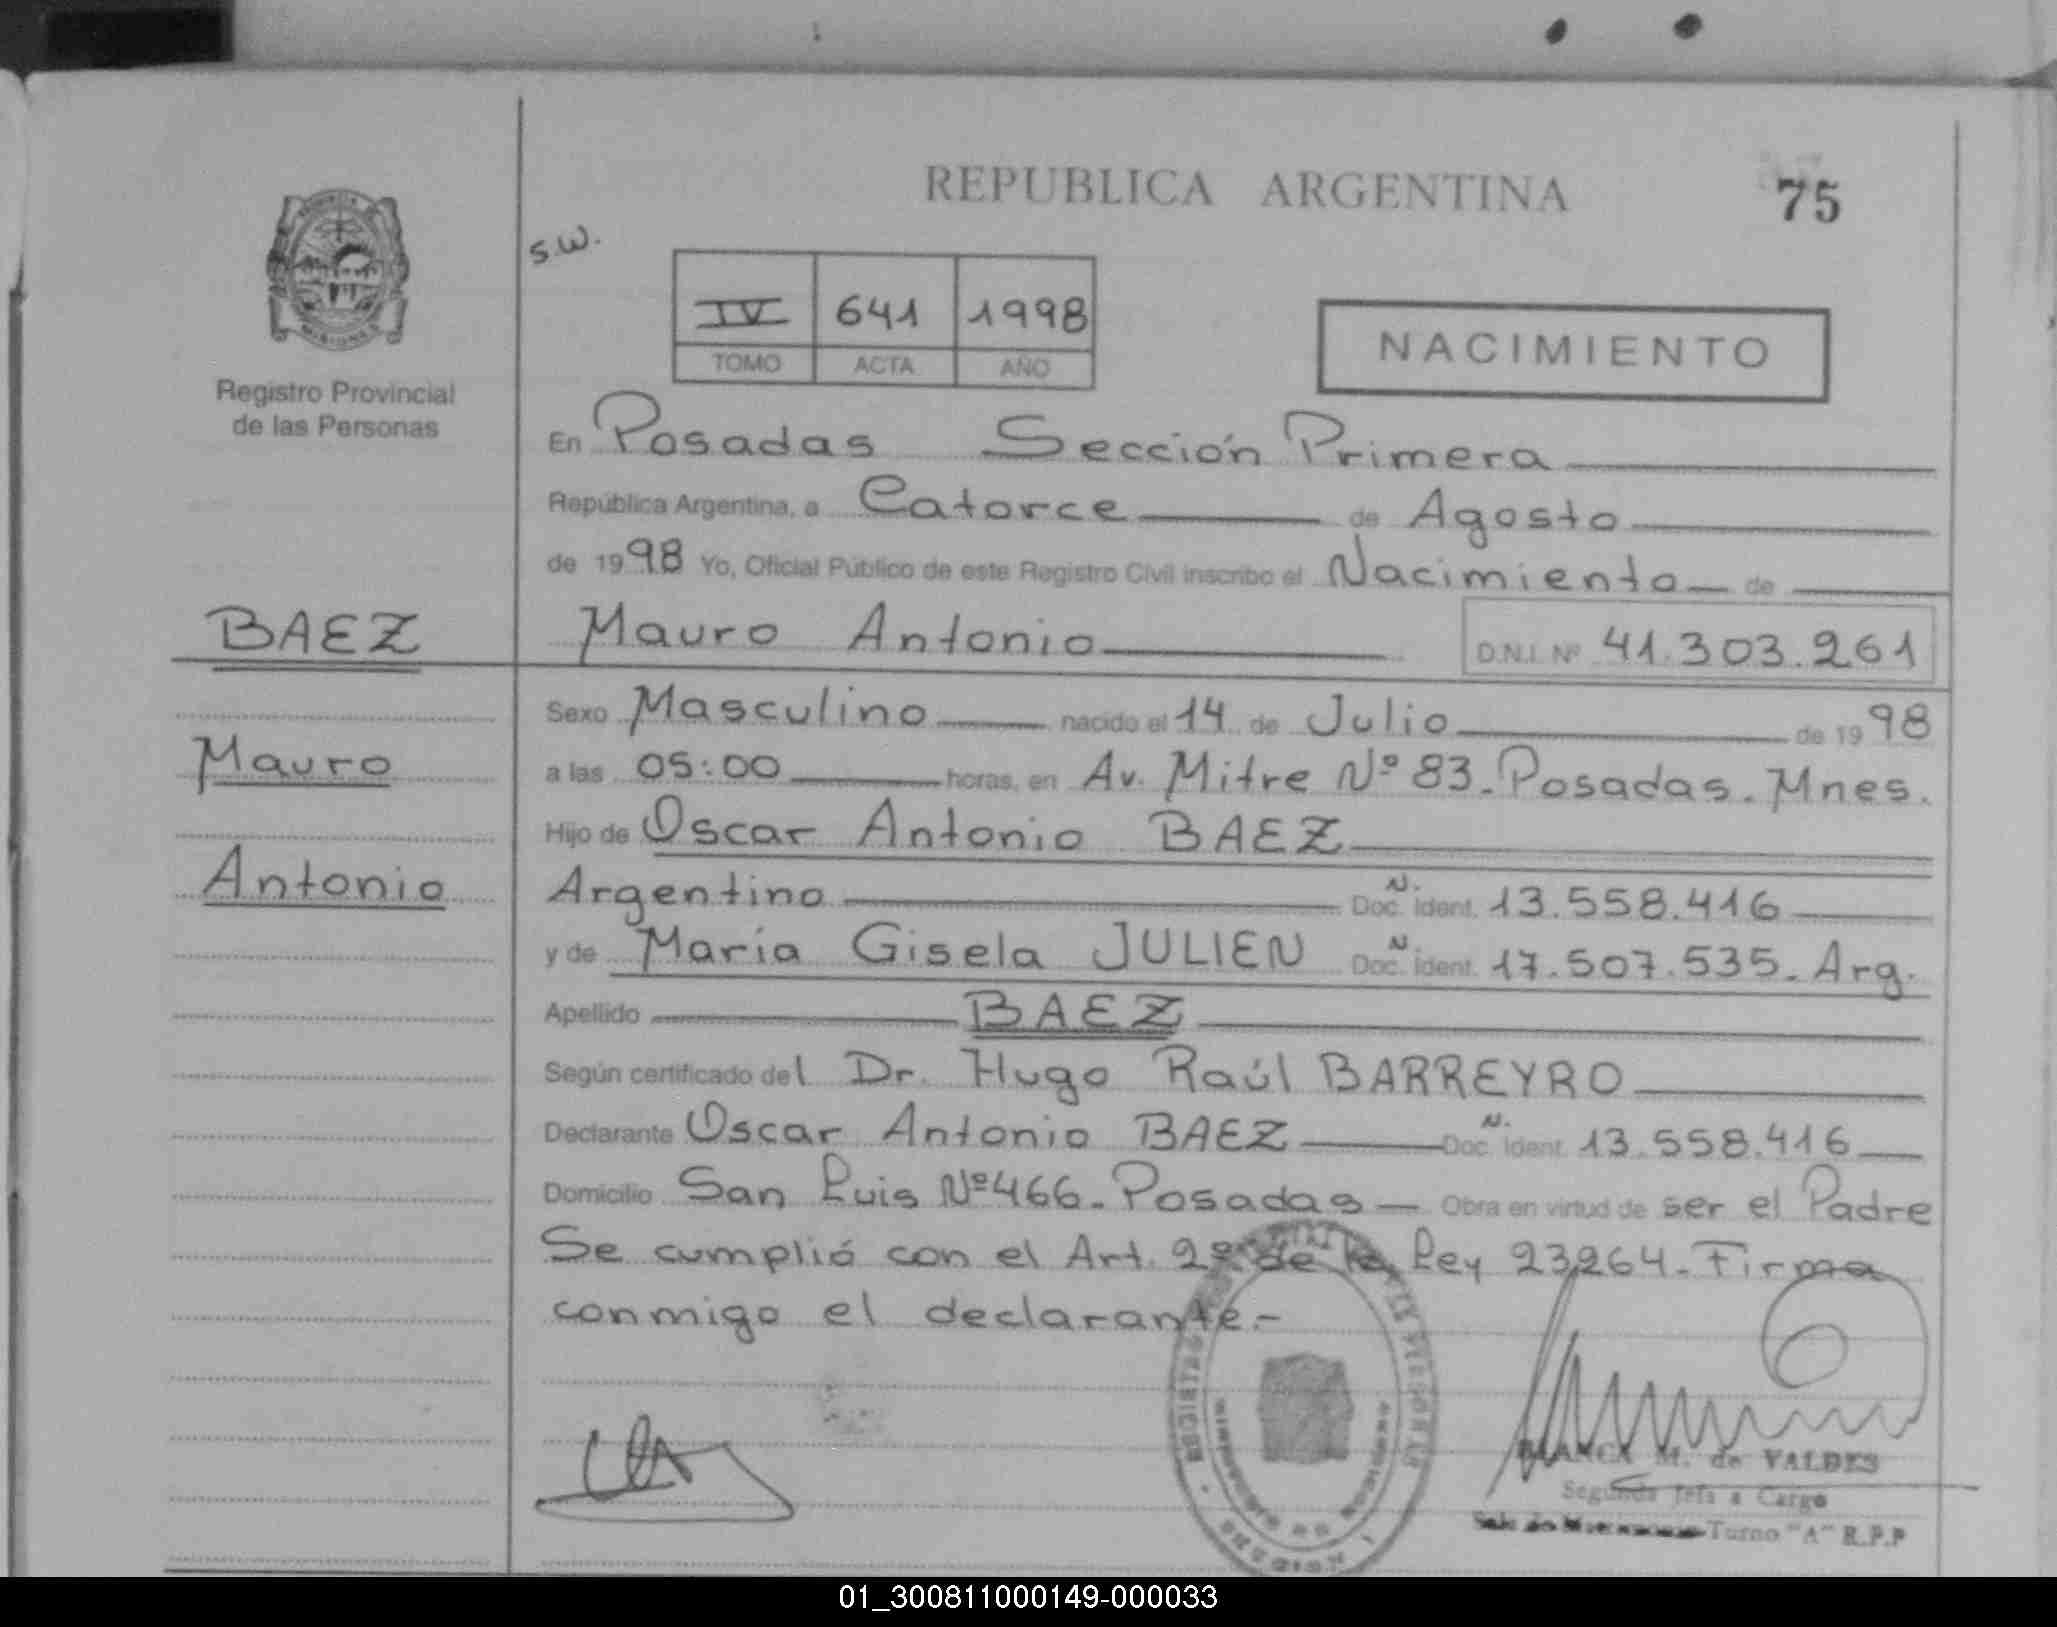 REPUBLICA ARGENTINA
75
S.W.
IV 641 1998
TOMO ACTA AÑO
NACIMIENTO
Registro Provincial
de las Personas
En Posadas Sección Primera
República Argentina, a Catorce de Agosto
de 1998 Yo, Oficial Público de este Registro Civil inscribo el Nacimiento de
BAEZ
Mauro Antonio D.N.I. Nº 41.303.261
Sexo Masculino nacido el 14 de Julio de 1998
Mauro
a las 05:00 horas, en Av. Mitre Nº 83. Posadas. Mnes.
Hijo de Oscar Antonio BAEZ
Antonio
Argentino N. Doc. Ident. 13.558.416
y de María Gisela JULIEN N. Doc. Ident. 17.507.535. Arg.
Apellido BAEZ
Según certificado del Dr. Hugo Raúl BARREYRO
Declarante Oscar Antonio BAEZ N. Doc. Ident. 13.558.416
Domicilio San Luis Nº466. Posadas — Obra en virtud de ser el Padre
Se cumplió con el Art. 2º de la Ley 23264. Firma
conmigo el declarante.-
BLANCA M. de VALDES
Segunda Jefa a Cargo
Turno "A" R.P.P
01_300811000149-000033